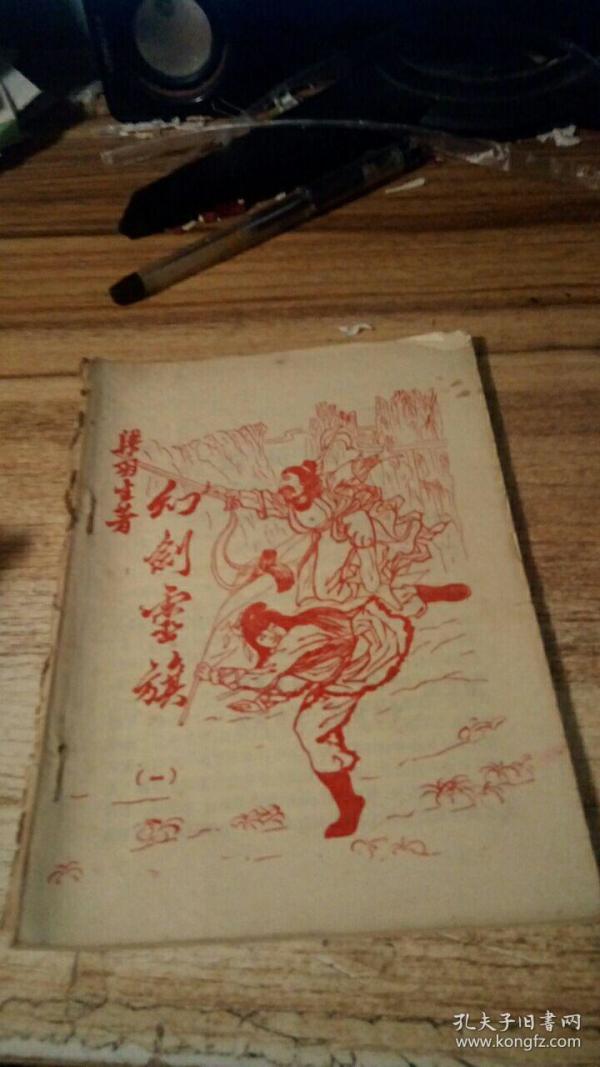 梁羽生著
幻剑灵旗
(一)
孔夫子旧書网
www.kongfz.com